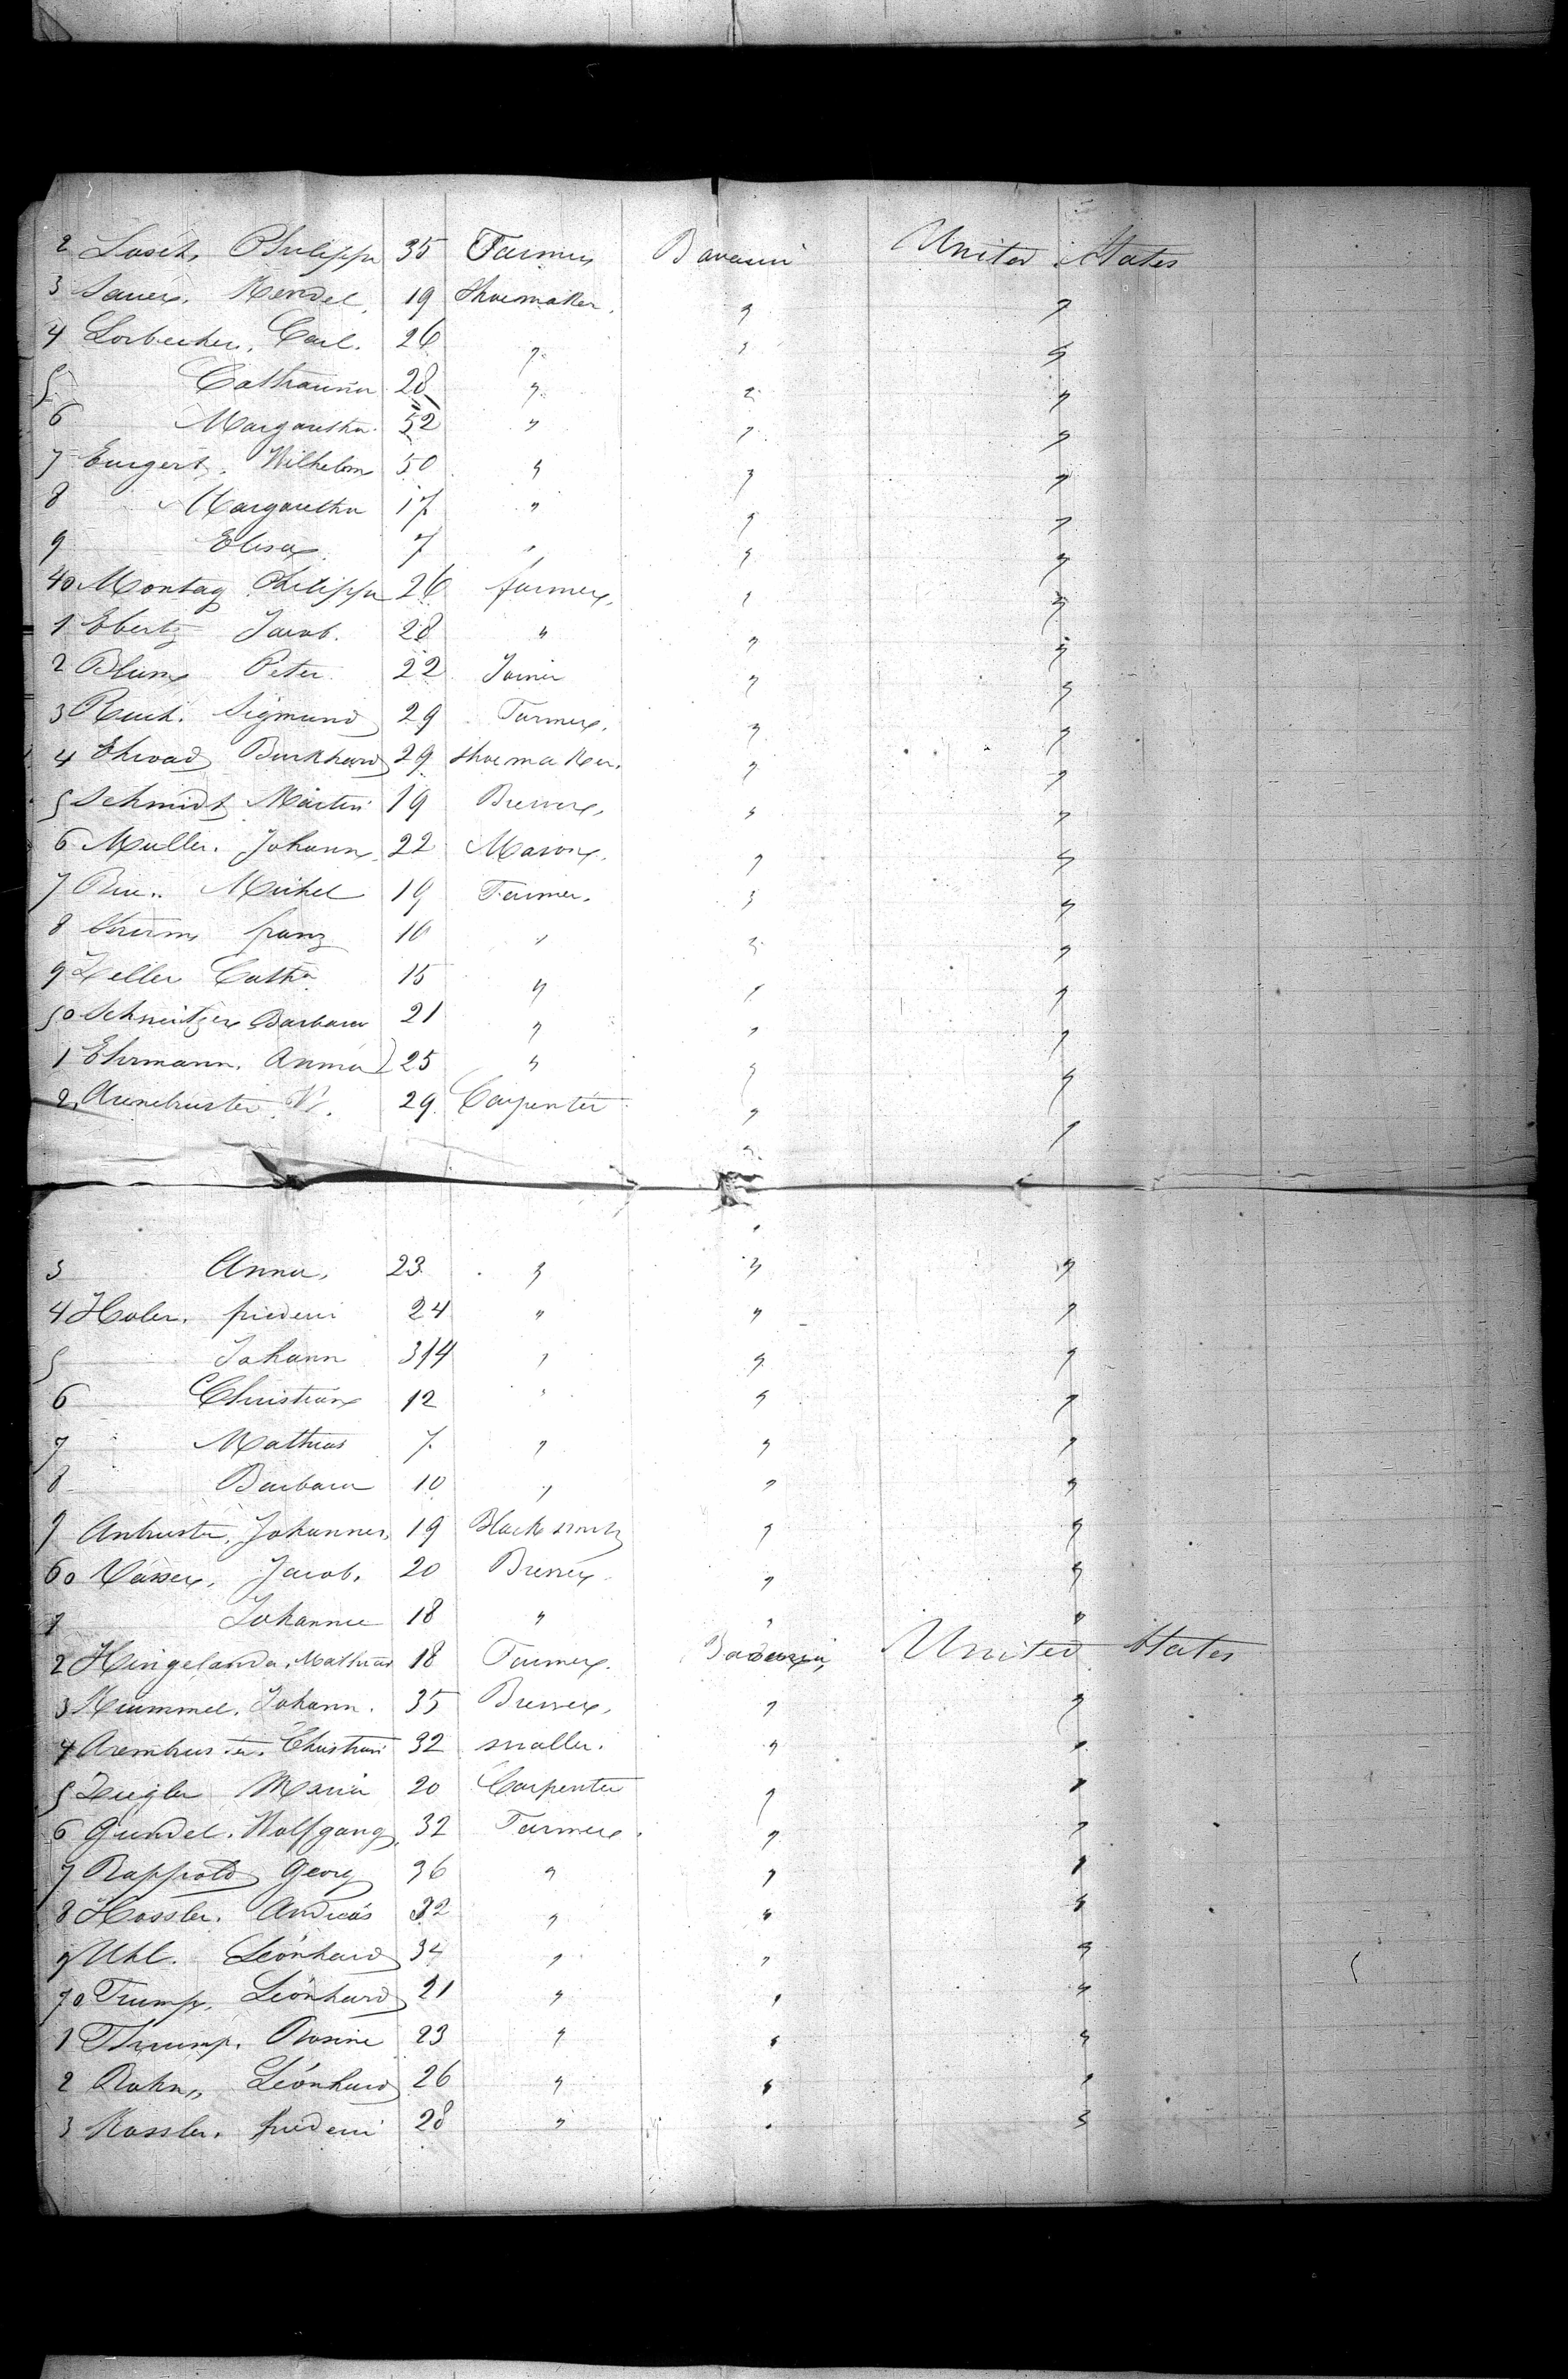 2 Losch, Philipp 35 Farmer Bavaria United States
3 Sauer. Wendel, 19 Shoemaker. " "
4 Lorbecher, Carl. 26 " " "
5 Catharina 28 " " "
6 Margaretha 52 " " "
7 Wilhelm 50 " " "
8 Margaretha 17 " " "
9 Elisa 7 " " "
40 Montag Philipp 26 farmer, " "
1 Ebertz Jacob. 28 " " "
2 Blum Peter 22 Joiner " "
3 Sigmund 29 Farmer, " "
4 Burkhard 29 shoemaker. " "
5 Schmidt Martin 19 Brewer, " "
6 Muller. Johann 22 Mason, " "
7 Michel 19 Farmer. " "
8 Sturm franz 16 " " "
9 Zeller Catha 15 " " "
50 Schneitzer Barbara 21 " " "
1 Ehrmann, Anna 25 " " "
2 29 Carpenter " "
3 Anna, 23 " " "
4 Huber. friederi 24 " " "
5 Johann 314 " " "
6 Christian 12 " " "
7 Mathias 7 " " "
8 Barbara 10 " " "
9 Johannes, 19 Blacksmith " "
60 Jacob, 20 Brewer " "
1 Johannes 18 " " "
2 Mathias 18 Farmer. United States
3 Kummel. Johann. 35 Brewer, " "
4 Christian 32 " "
5 Ziegler Maria 20 Carpenter " "
6 Gundel. Wolfgang, 32 Farmer. " "
7 Rappold Georg 36 " " "
8 Hossler. Andreas 32 " " "
9 Uhl. Leonhard 34 " " "
70 Trump, Leonhard 21 " " "
1 Thrump, Rosine 23 " " "
2 Rohn, Leonhard 26 " " "
3 Kossler. friederi 28 " " "